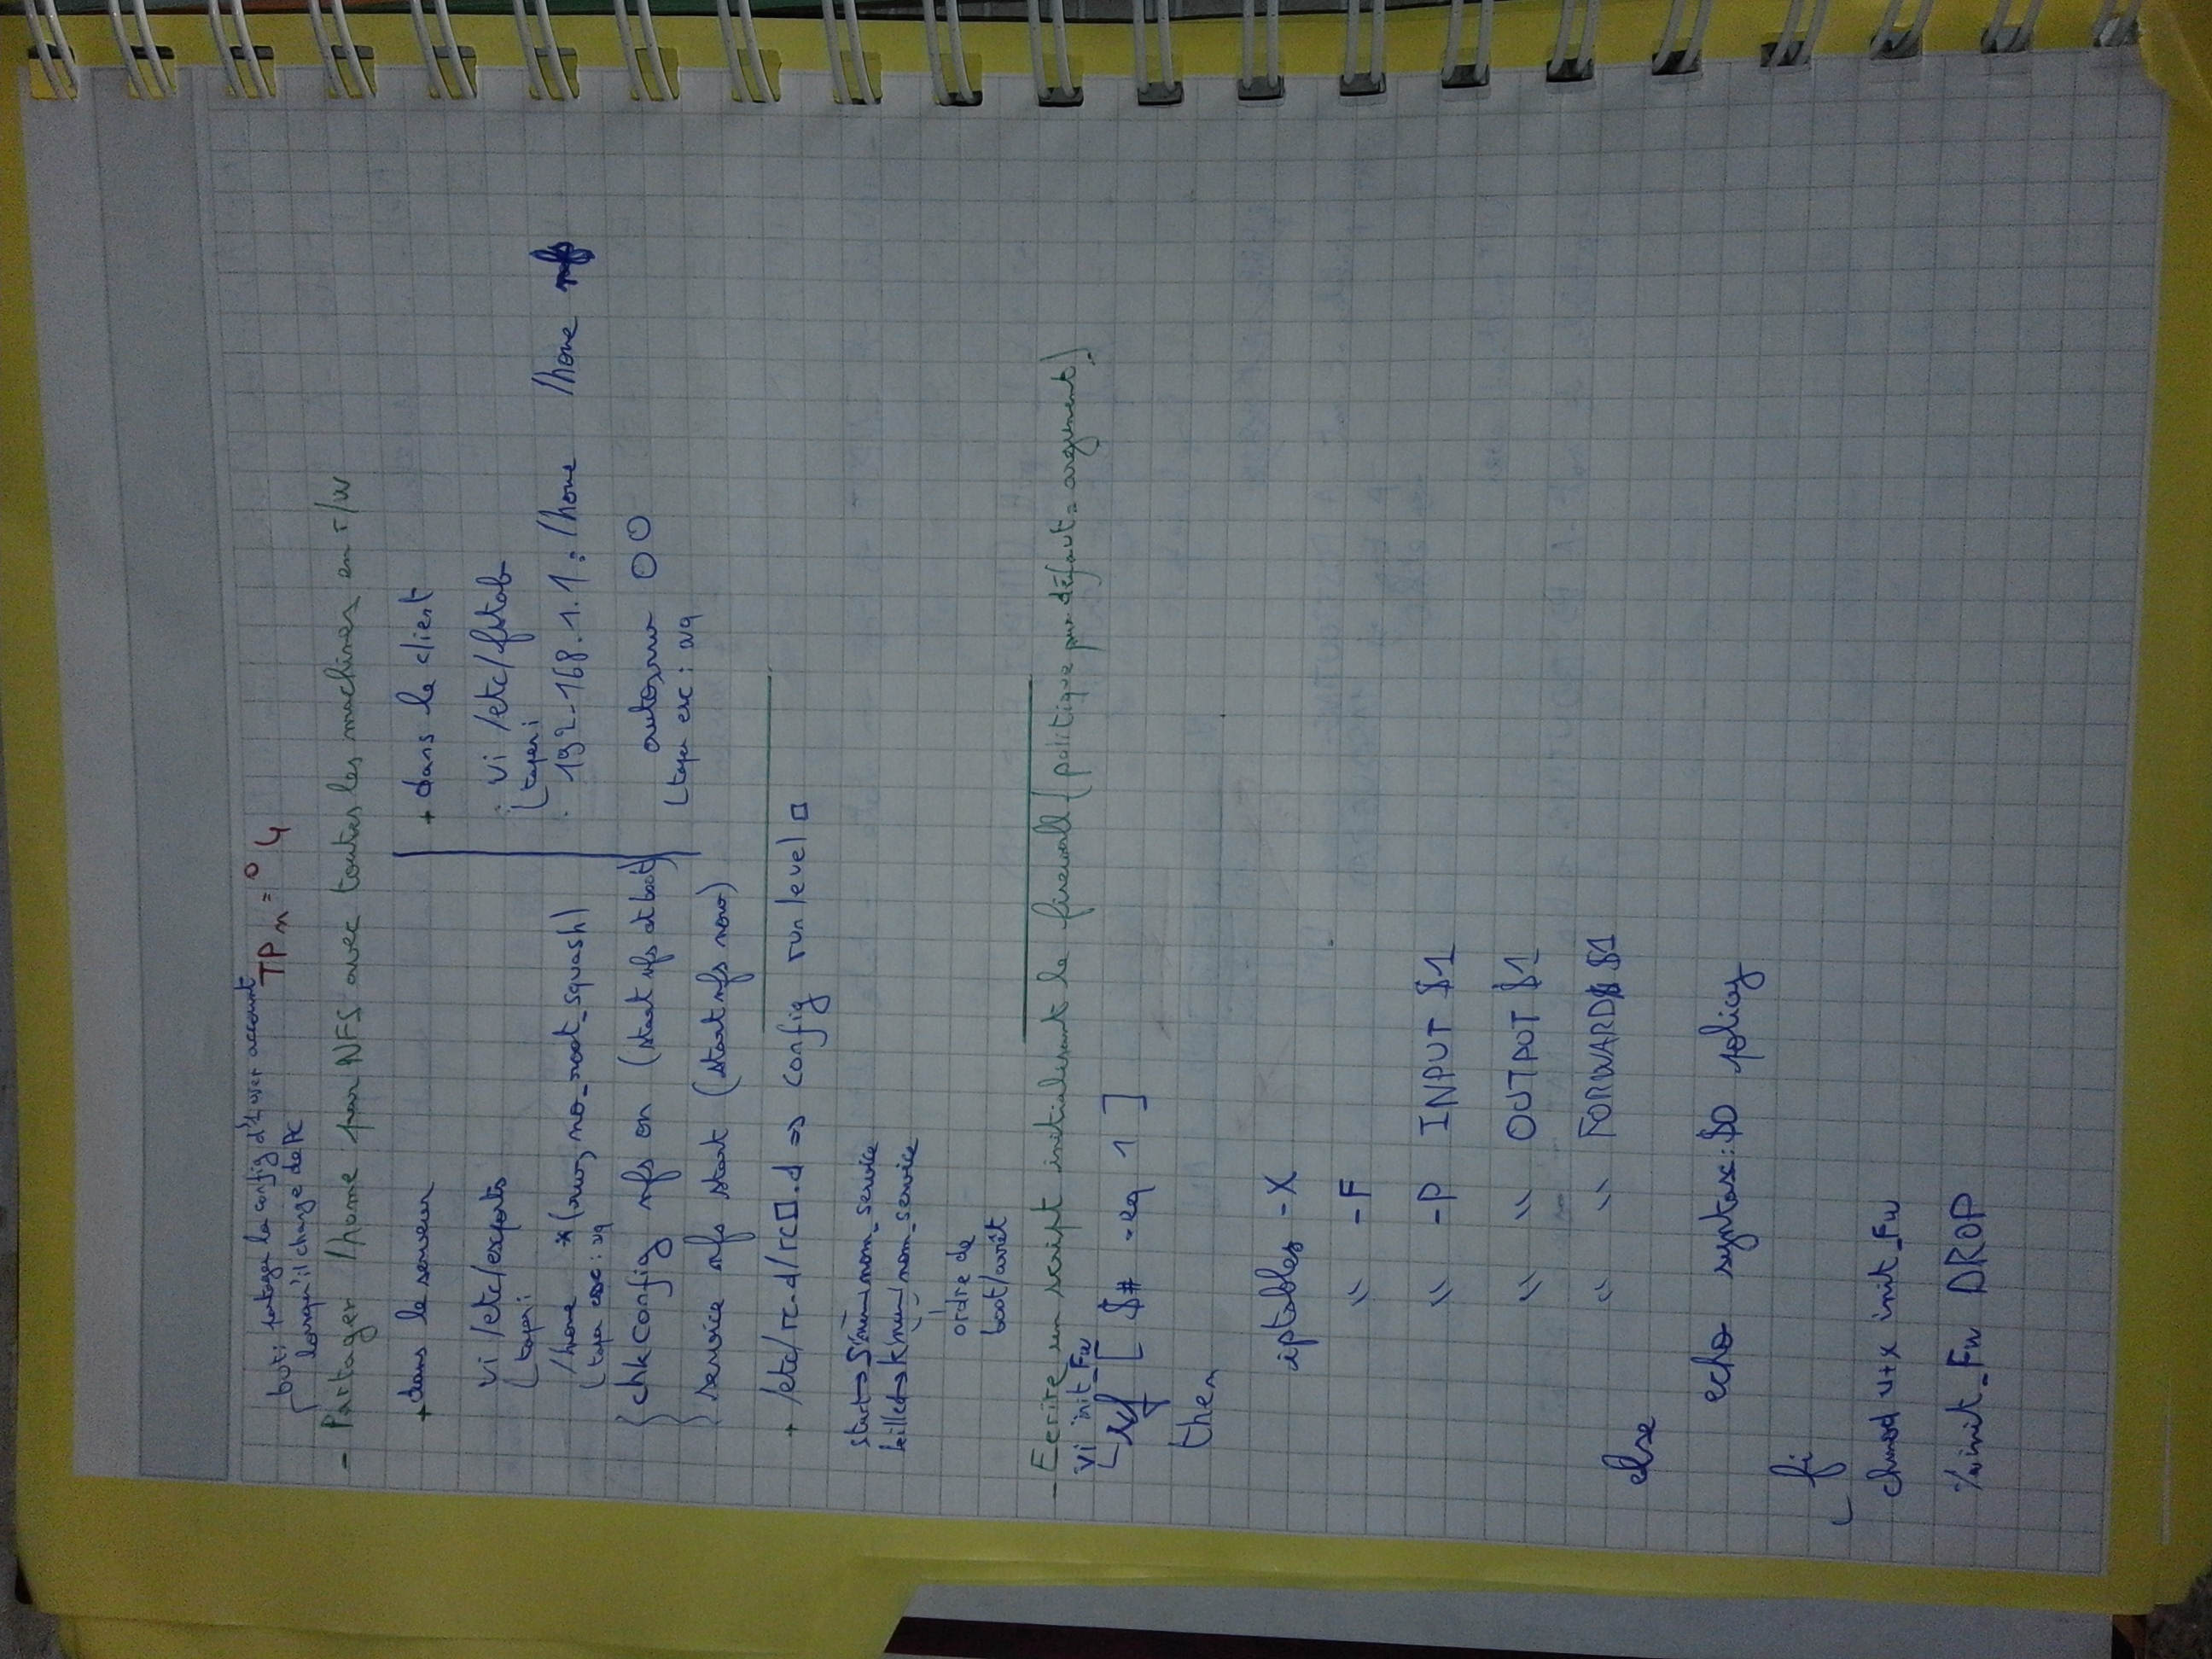 TP n=° 4
but: partager la config d'1 user account
lorsqu'il change de PC
- Partager /home par NFS avec toutes les machines en r/w
+ dans le serveur
vi /etc/exports
taper i
/home *(rw, no_root_squash)
taper esc : wq
chkconfig nfs on (start nfs at boot)
service nfs start (start nfs now)
+ dans le client
vi /etc/fstab
taper i
192.168.1.1:/home /home nfs
auto,rw 0 0
taper esc : wq
+ /etc/rc.d/rc□.d => config runlevel □
start → S num nom_service
killed → K num nom_service
ordre de
boot/arrêt
- Ecrire un script initialisant le firewall (politique par défaut = argument)
vi init_Fw
if [ $# -eq 1 ]
then
iptables -X
" -F
" -P INPUT $1
" " OUTPUT $1
" " FORWARD $1
else
echo syntax: $0 policy
fi
chmod u+x init_Fw
init_Fw DROP